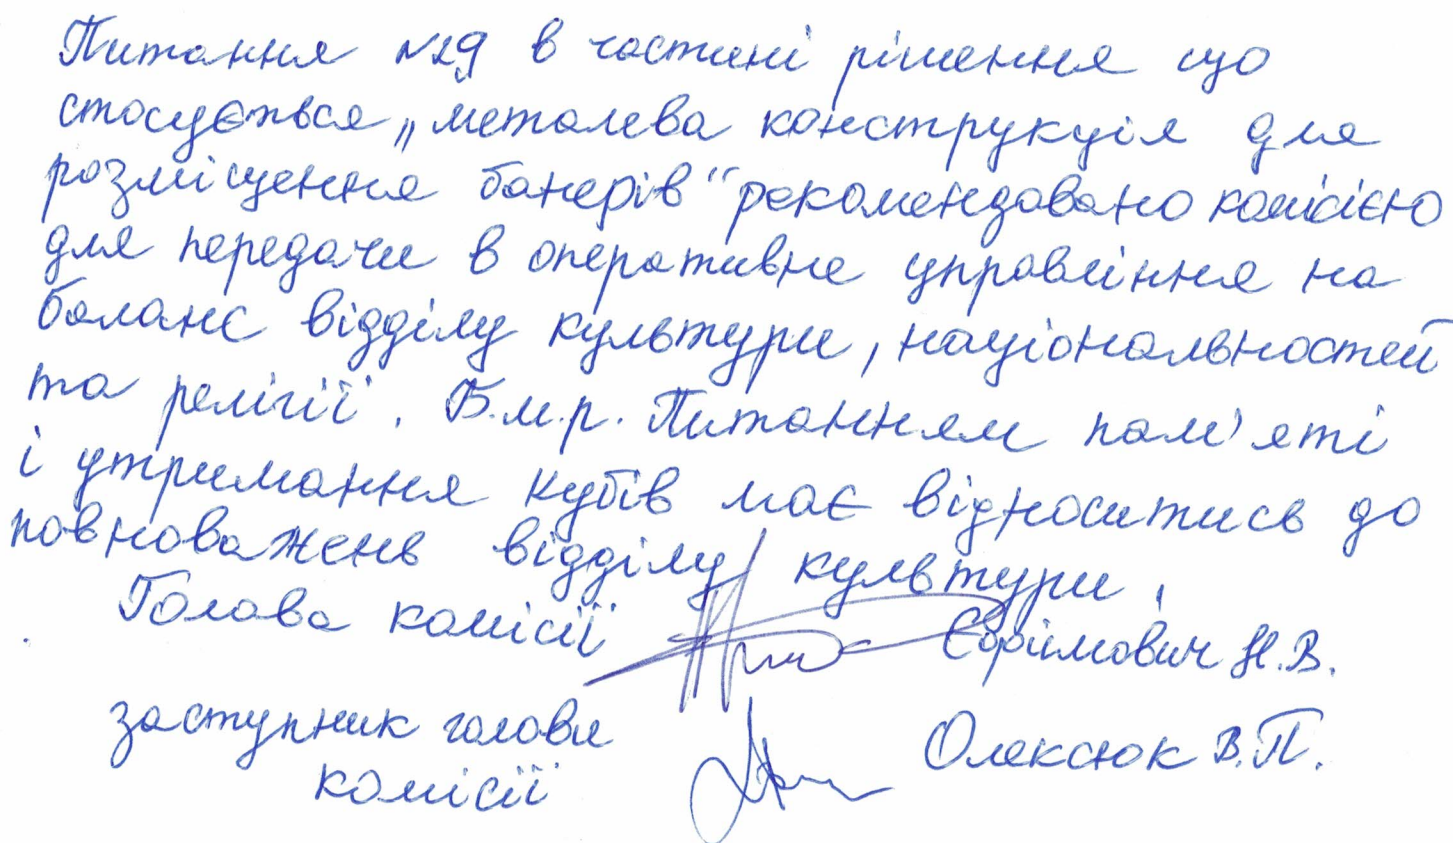 Питання №29 в частині рішення що
стосується „металева конструкція для
розміщення банерів“ рекомендовано комісією
для передачи в оперативне управління на
баланс відділу культури, національностей
та релігії. Б.м.р. Питанням пам'яті
і утримання кубів має відноситись до
повноважень відділу культури.
Голова комісії Єфімович Н.В.
заступник голови Олексюк В.П.
комісії